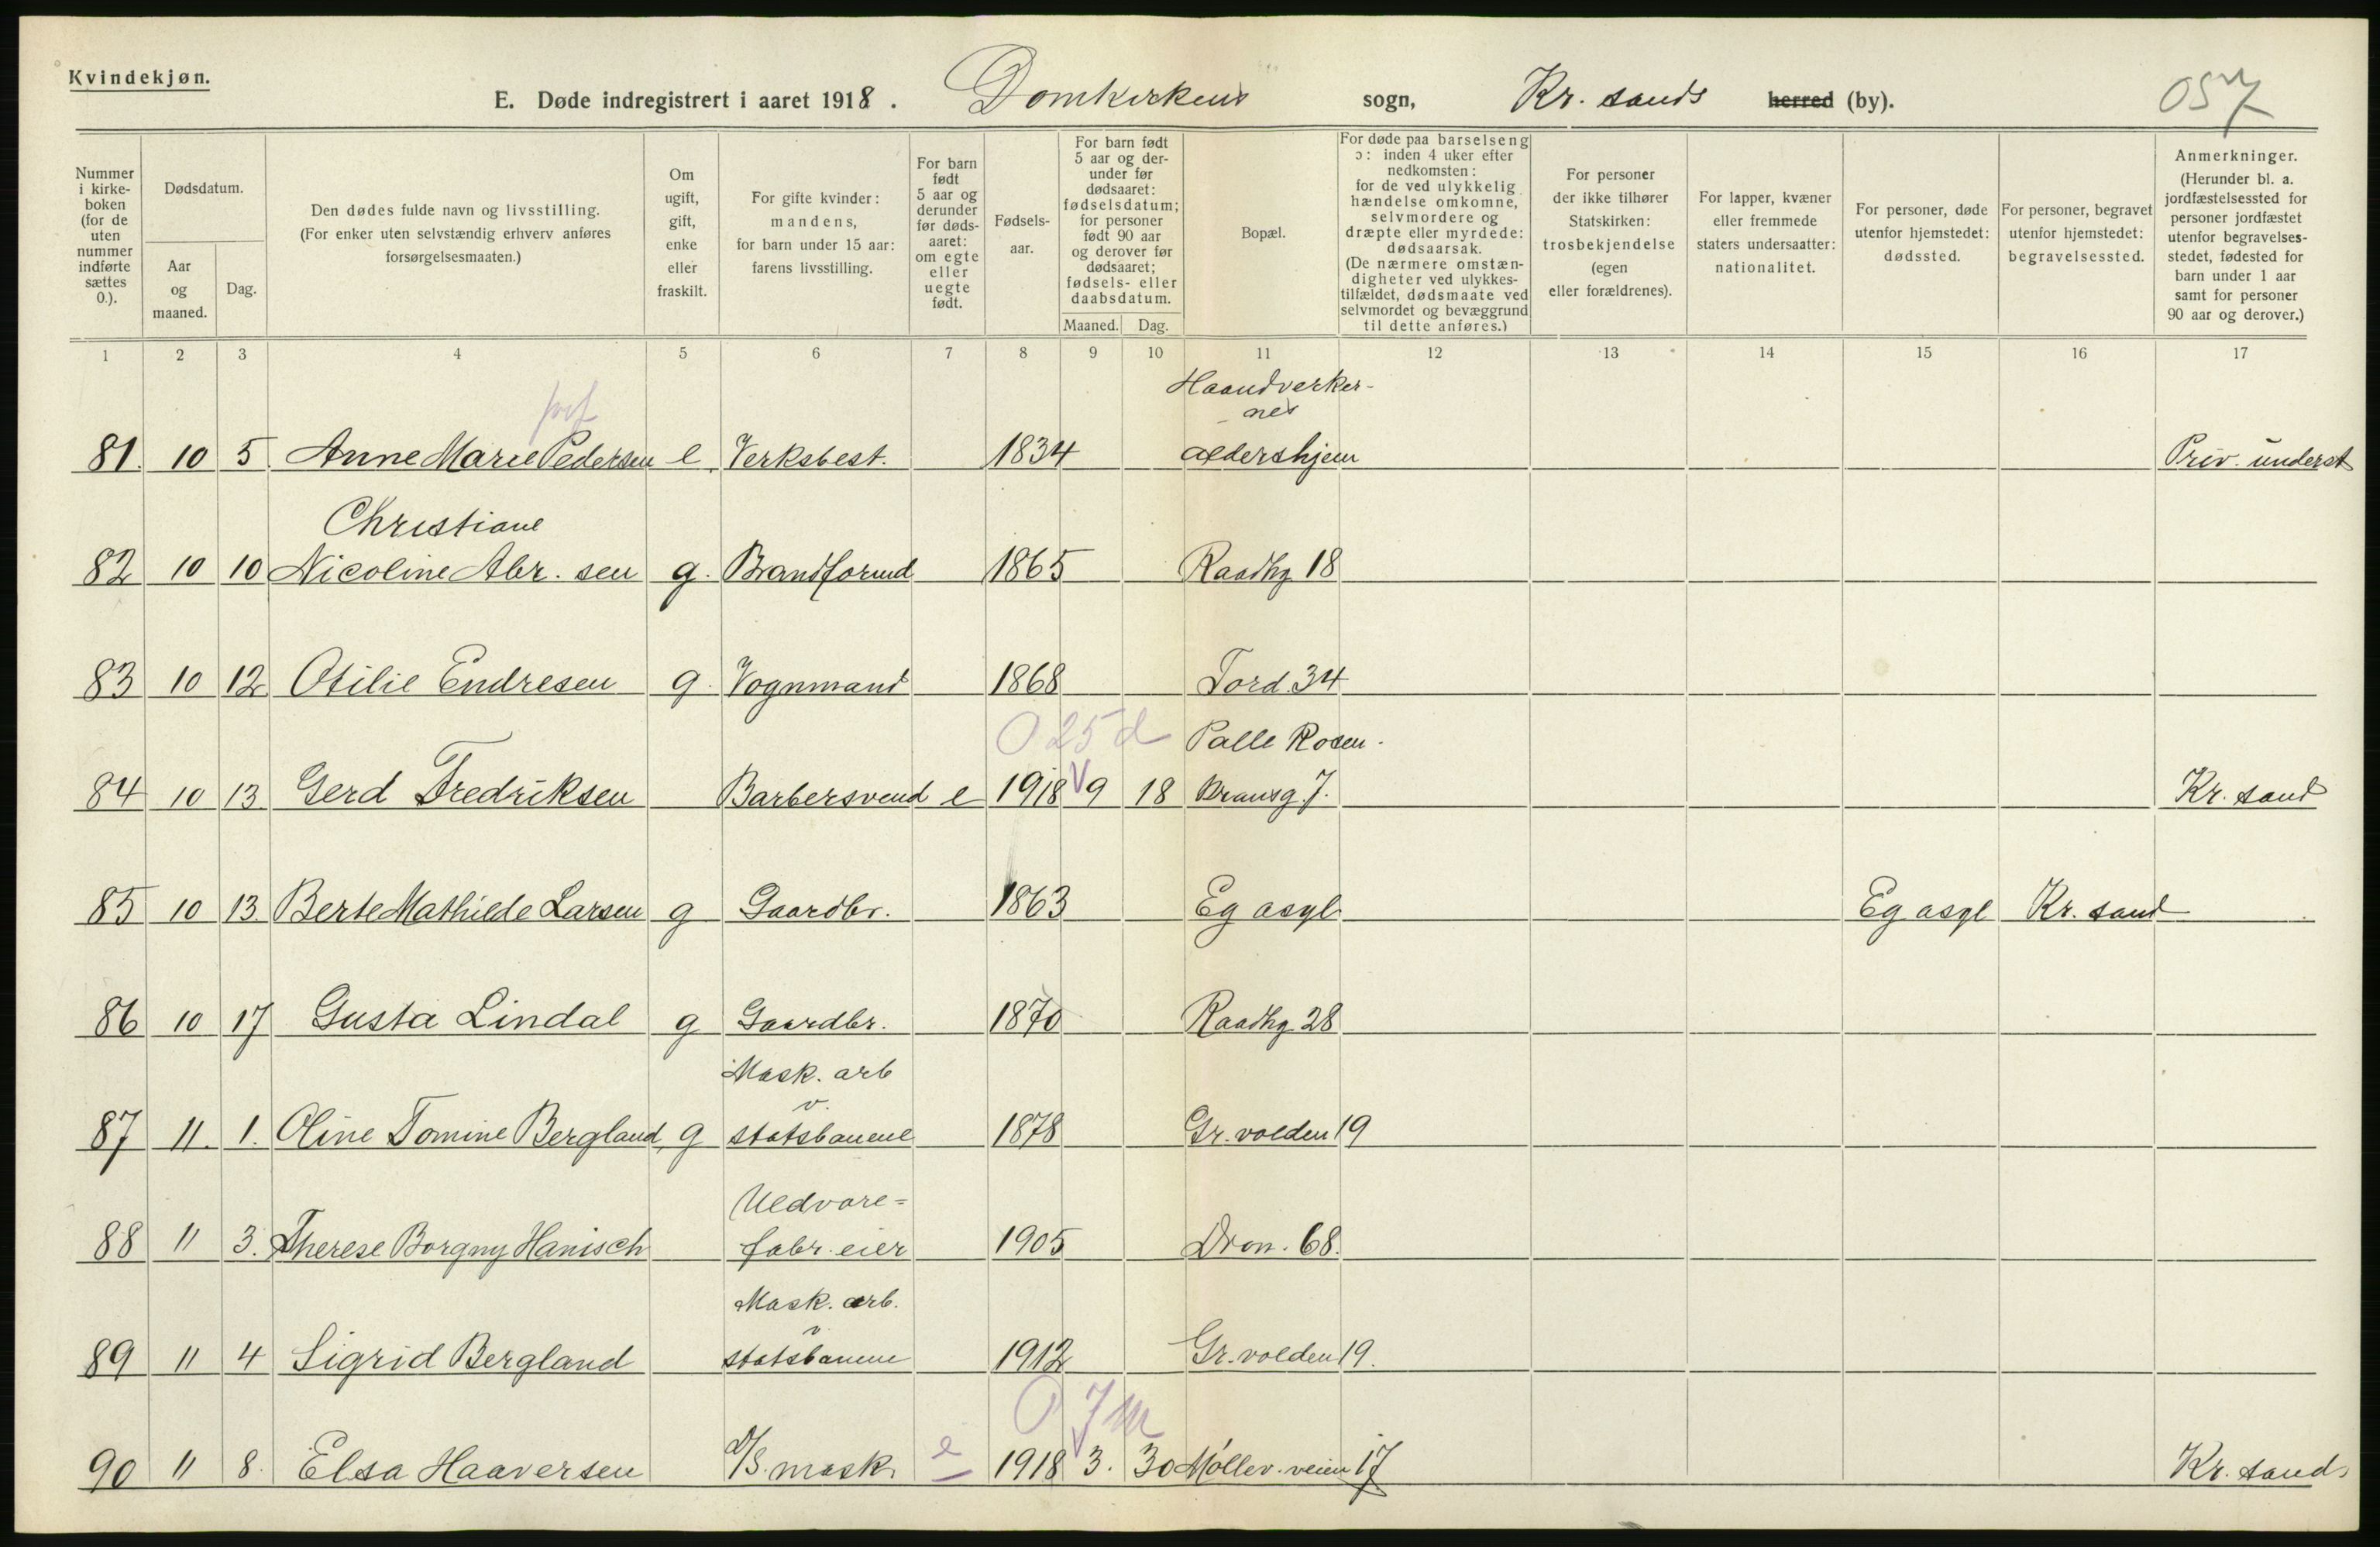 Kvindekjøn.
E. Døde indregistrert i aaret 1918. Domkirkens sogn, Kr. sands herred (by). 057
Nummer i kirke-boken (for de uten nummer indførte sættes 0.).
Dødsdatum.
Aar og maaned.
Dag.
Den dødes fulde navn og livsstilling.
(For enker uten selvstændig erhverv anføres
forsørgelsesmaaten.)
Om ugift, gift, enke eller fraskilt.
For gifte kvinder: mandens, for barn under 15 aar: farens livsstilling.
For barn født 5 aar og derunder før døds-aaret: om egte eller uegte født.
Fødsels-aar.
For barn født 5 aar og der-under før dødsaaret: fødselsdatum; for personer født 90 aar og derover før dødsaaret; fødsels- eller daabsdatum.
Maaned. Dag.
Bopæl.
For døde paa barselseng ɔ: inden 4 uker efter nedkomsten: for de ved ulykkelig hændelse omkomne, selvmordere og dræpte eller myrdede: dødsaarsak. (De nærmere omstæn-digheter ved ulykkes-tilfældet, dødsmaate ved selvmordet og bevæggrund til dette anføres.)
For personer der ikke tilhører Statskirken: trosbekjendelse (egen eller forældrenes).
For lapper, kvæner eller fremmede staters undersaatter: nationalitet.
For personer, døde utenfor hjemstedet: dødssted.
For personer, begravet utenfor hjemstedet: begravelsessted.
Anmerkninger. (Herunder bl. a. jordfæstelsessted for personer jordfæstet utenfor begravelses-stedet, fødested for barn under 1 aar samt for personer 90 aar og derover.)
1 2 3 4 5 6 7 8 9 10 11 12 13 14 15 16 17
Haandverker-
nes
81. 10 5. Anne Marie Pedersen e. Verksbest. 1834 aldershjem Priv. underst
Christiane
82 10 10 Nicoline Abr.sen g. Brandformd 1865 Raadhg 18
83 10 12 Otilie Endresen g. Vognmand 1868 Tord. 34
0 25 d Palle Rosen-
84 10 13 Gerd Fredriksen Barbersvend e 1918 9 18 kransg. 7. Kr. sand
85 10 13. Berte Mathilde Larsen g Gaardbr. 1863 Eg asyl Eg asyl Kr. sand
86 10 17 Gusta Lindal g Gaardbr. 1870 Raadhg 28
Mask. arb
v.
87 11. 1. Oline Tomine Bergland g statsbanene 1878 Gr. volden 19
Uldvare=
88 11 3. Therese Borgny Hanisch fabr. eier 1905 Dron. 68.
Mask. arb.
v
89 11 4 Sigrid Bergland statsbanene 1912 Gr. volden 19.
0 7 m
90 11 8. Elsa Haaversen D/S. mask. e 1918 3. 30 Møllev. veien 17 Kr. sand